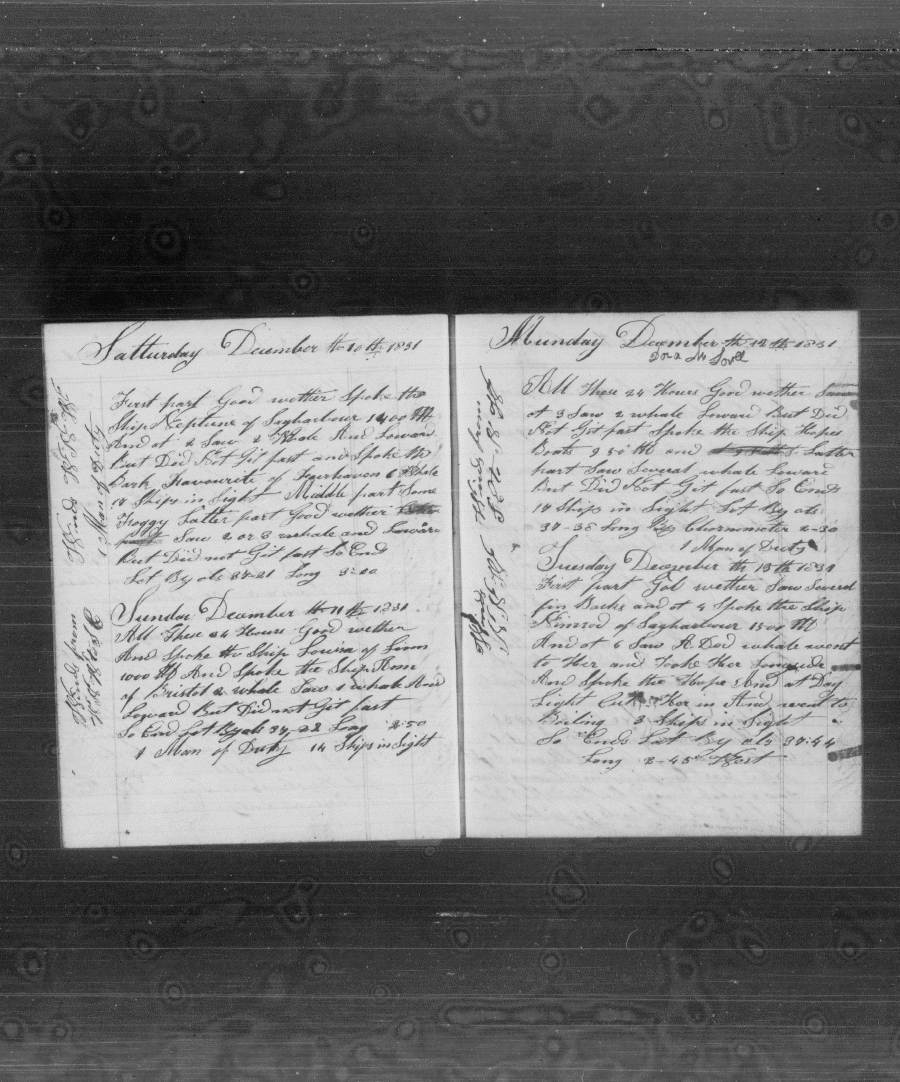 Satturday December th 10 th 1831
First part Good wether Spoke the
Ship Neptune of Sagharbour 1400 bb
And at 2 Saw 2 Whale And Loward
But Did Not Git fast and Spoke the
Bark Favourite of Fairhaven 6 Whale
17 Ships in Sight Middle part Some
Foggy Latter part Good wether
Saw 2 or 3 whale and Loward
But Did not Git fast So End
Lat By obs 37-21 Long 3:00
Winds
1 Man of Duty
Sunday December th 11 th 1831
All These 24 Hours Good wether
And Spoke the Ship Louisa of Linn
1000 bb And Spoke the Ship Ann
of Bristol 2 whale Saw 1 whale And
Loward But Did not Git fast
So End Lat By obs 37-22 Long 2:50
1 Man of Duty 14 Ships in Sight
Winds from
Munday December th 12 th 1831
All These 24 Hours Good wether
at 3 Saw 2 whale Loward But Did
Not Git fast Spoke the Ship Hopes
Boats 950 bb and Latter
part Saw Several whale Loward
But Did Not Git fast So Ends
17 Ships in Sight Lat By obs
37-38 Long By Chornimeter 2-30
1 Man of Duty
Winds from
Tuesday December th 13 th 1831
First part Gol wether Saw Several
fin Backs and at 4 Spoke the Ship
Nimrod of Sagharbour 1500 bb
And at 6 Saw A Ded whale went
to Her and Tooke Her Longside
And Spoke the Hope And at Day
Light Cut Her in And went to
Boiling 3 Ships in Sight
So Ends Lat By obs 37:44
Long 2-45 West
Winds from